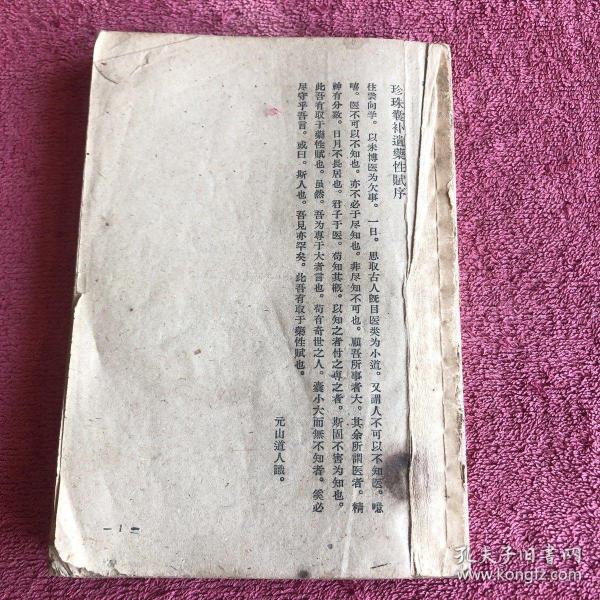 珍珠囊补遗藥性賦序
往尝向学。以未博医为欠事。一日。思取古人既目医类为小道。又謂人不可以不知医。噫
嘻。医不可以不知也。亦不必于尽知也。非尽知不可也。顧吾所事者大。其余所謂医者。精
神有分数。日月不長居也。君子于医。苟知其概。以知之者付之專之者。斯固不害为知也。
此吾有取于藥性賦也。虽然。吾为專于大者言也。苟有奇世之人。囊小大而無不知者。奚必
尽守乎吾言。或曰。斯人也。吾見亦罕矣。此吾有取于藥性賦也。
元山道人識。
— 1 —
孔夫子旧书网
www.kongfz.com